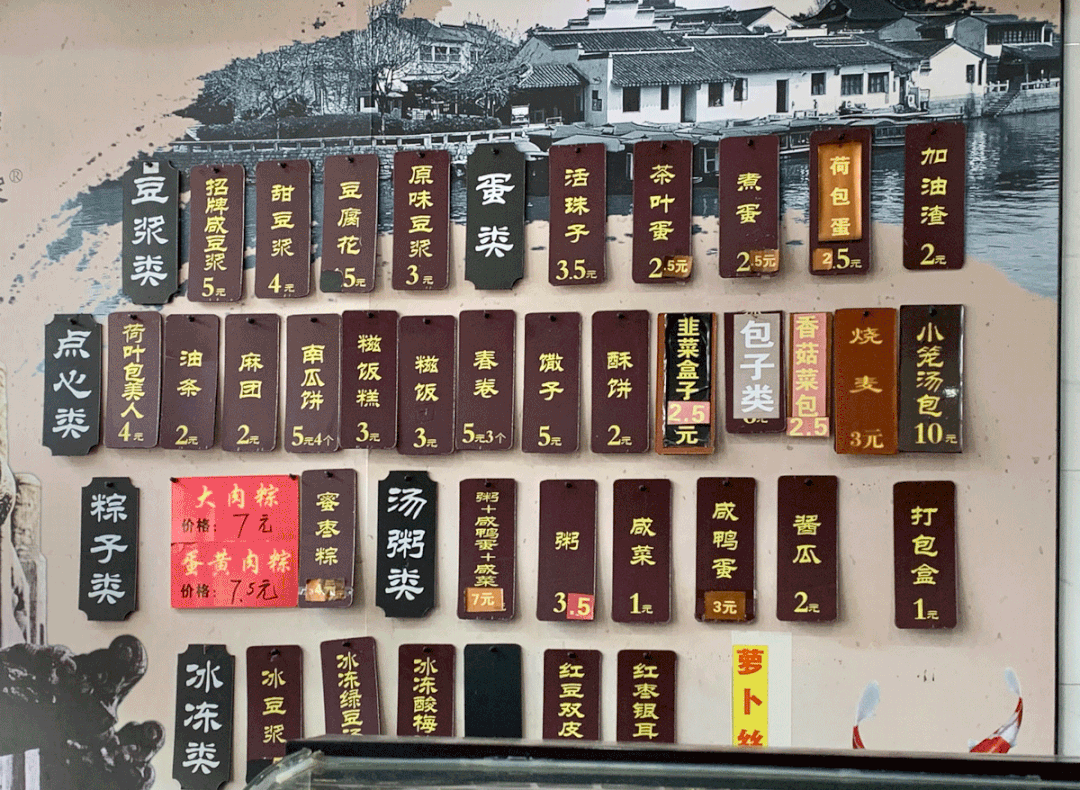 ®
豆浆类
招牌咸豆浆 5元
甜豆浆 4元
豆腐花 5元
原味豆浆 3元
蛋类
活珠子 3.5元
茶叶蛋 2.5元
煮蛋 2.5元
荷包蛋 2.5元
加油渣 2元
点心类
荷叶包美人 4元
油条 2元
麻团 2元
南瓜饼 5元4个
糍饭糕 3元
糍饭 3元
春卷 5元3个
馓子 5元
酥饼 2元
韭菜盒子 2.5元
包子类
香菇菜包 2.5
烧麦 3元
小笼汤包 10元
粽子类
大肉粽
价格：7元
蛋黄肉粽
价格：7.5元
蜜枣粽 4元
汤粥类
粥+咸鸭蛋+咸菜 7元
粥 3.5
咸菜 1元
咸鸭蛋 3元
酱瓜 2元
打包盒 1元
冰冻类
冰豆浆
冰冻绿豆
冰冻酸梅
红豆双皮
红枣银耳
萝卜丝